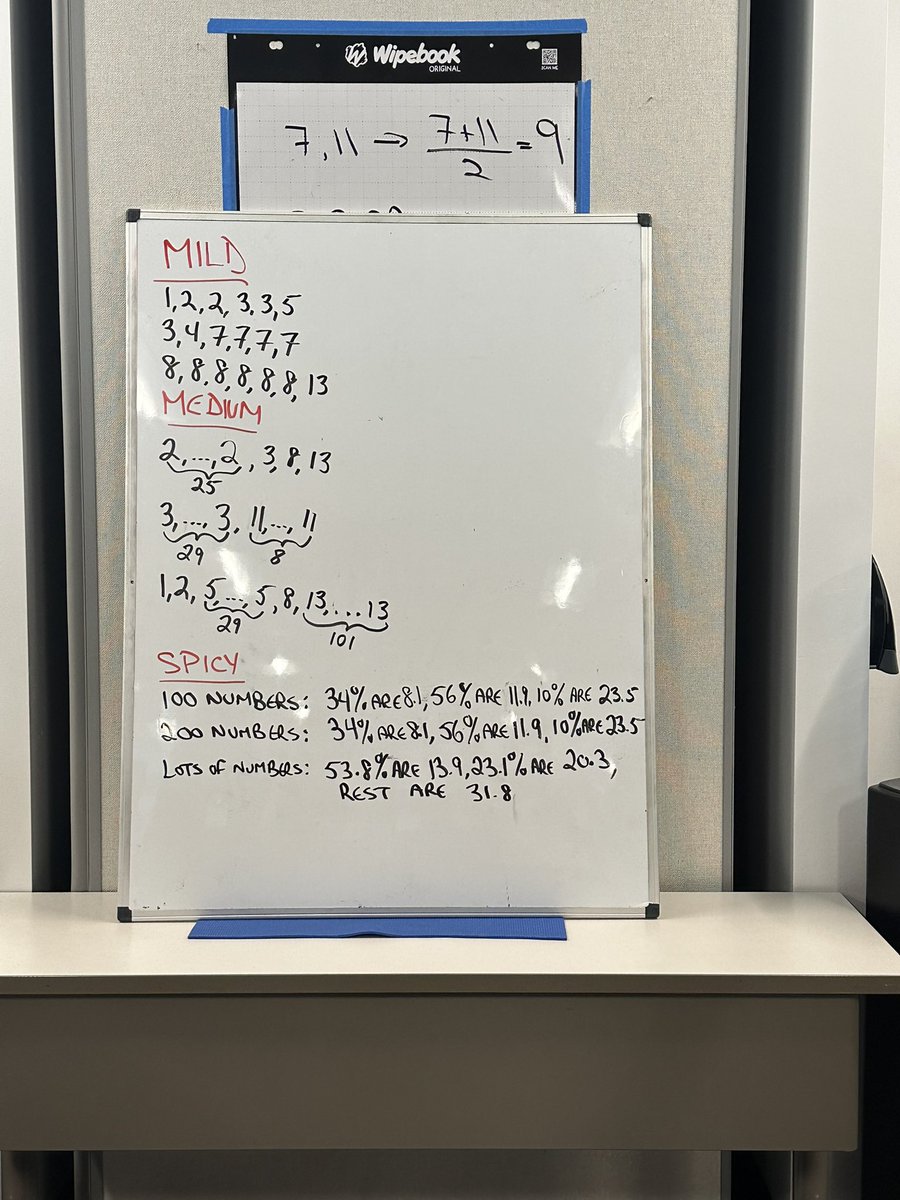 Wipebook
ORIGINAL
SCAN ME
7, 11 ⇒ 7+11/2 = 9
MILD
1, 2, 2, 3, 3, 5
3, 4, 7, 7, 7, 7
8, 8, 8, 8, 8, 8, 13
MEDIUM
2, ..., 2, 3, 8, 13
25
3, ..., 3, 11, ..., 11
29 8
1, 2, 5, ..., 5, 8, 13, ... 13
29 101
SPICY
100 NUMBERS: 34% ARE 8.1, 56% ARE 11.9, 10% ARE 23.5
200 NUMBERS: 34% ARE 8.1, 56% ARE 11.9, 10% ARE 23.5
LOTS OF NUMBERS: 53.8% ARE 13.9, 23.1% ARE 20.3,
REST ARE 31.8